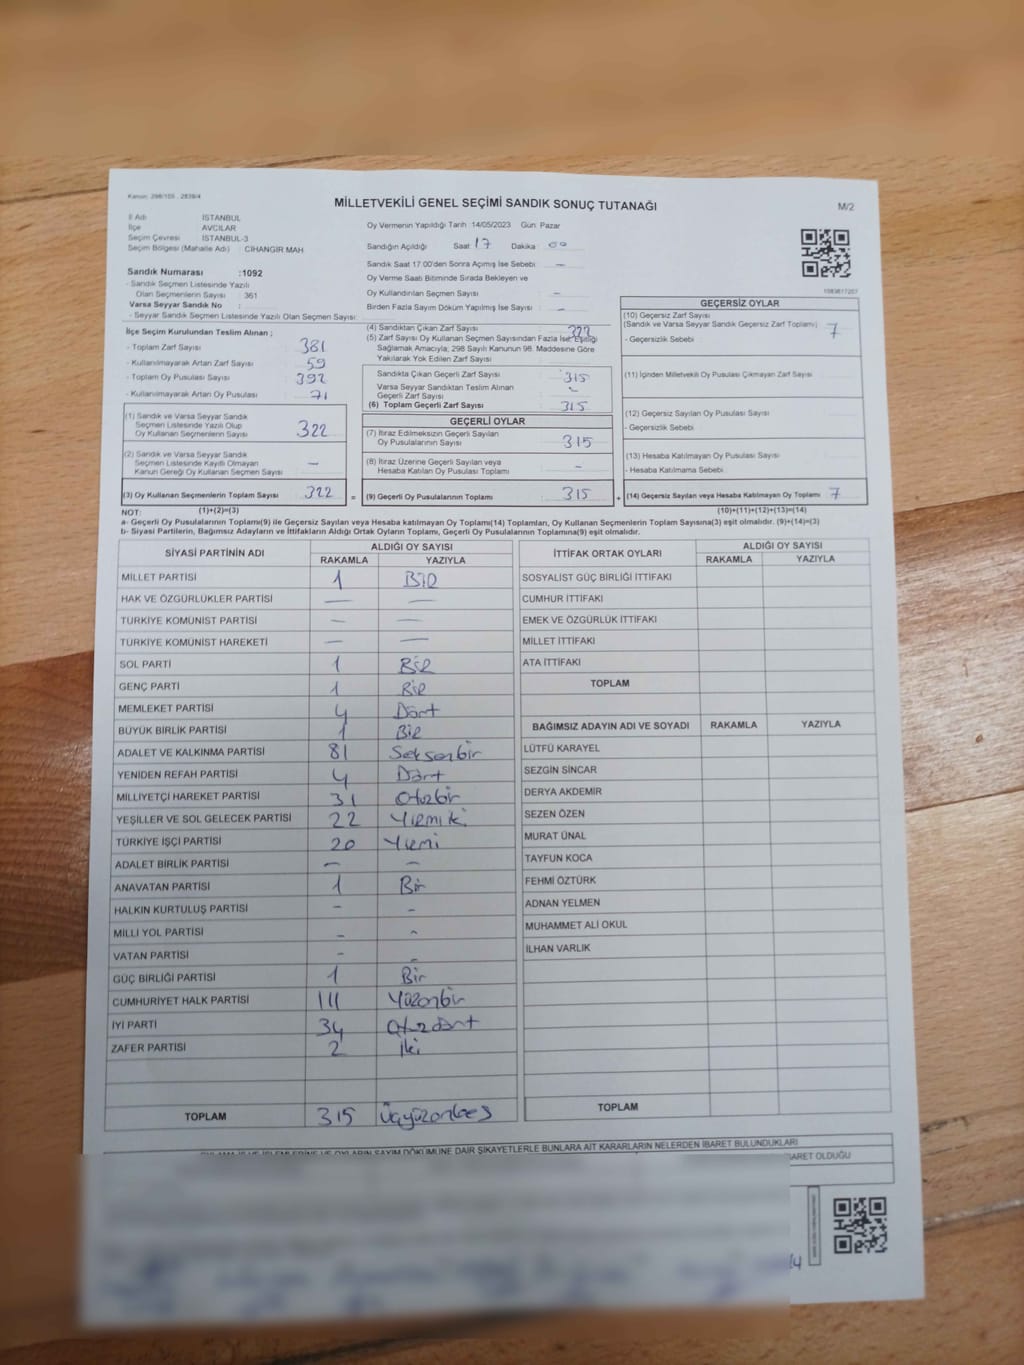 Kanun: 298/105 , 2839/4
MİLLETVEKİLİ GENEL SEÇİMİ SANDIK SONUÇ TUTANAĞI
M/2
İl Adı İSTANBUL
İlçe AVCILAR
Seçim Çevresi İSTANBUL-3
Seçim Bölgesi (Mahalle Adı) CİHANGİR MAH
Sandık Numarası :1092
- Sandık Seçmen Listesinde Yazılı
Olan Seçmenlerin Sayısı 361
Varsa Seyyar Sandık No
- Seyyar Sandık Seçmen Listesinde Yazılı Olan Seçmen Sayısı:
Oy Vermenin Yapıldığı Tarih :14/05/2023 Gün: Pazar
Sandığın Açıldığı Saat 17 Dakika 00
Sandık Saat 17.00'den Sonra Açımış İse Sebebi –
Oy Verme Saati Bitiminde Sırada Bekleyen ve
Oy Kullandırılan Seçmen Sayısı –
Birden Fazla Sayım Döküm Yapılmış İse Sayısı –
1083817207
İlçe Seçim Kurulundan Teslim Alınan ;
- Toplam Zarf Sayısı 381
- Kullanılmayarak Artan Zarf Sayısı 59
- Toplam Oy Pusulası Sayısı 392
- Kullanılmayarak Artan Oy Pusulası 71
(1) Sandık ve Varsa Seyyar Sandık
Seçmen Listesinde Yazılı Olup
Oy Kullanan Seçmenlerin Sayısı 322
(2) Sandık ve Varsa Seyyar Sandık
Seçmen Listesinde Kayıtlı Olmayan
Kanun Gereği Oy Kullanan Seçmen Sayısı –
(3) Oy Kullanan Seçmenlerin Toplam Sayısı 322 =
(4) Sandıktan Çıkan Zarf Sayısı 322
(5) Zarf Sayısı Oy Kullanan Seçmen Sayısından Fazla İse, Eşitliği
Sağlamak Amacıyla, 298 Sayılı Kanunun 98. Maddesine Göre
Yakılarak Yok Edilen Zarf Sayısı
Sandıkta Çıkan Geçerli Zarf Sayısı 315
Varsa Seyyar Sandıktan Teslim Alınan
Geçerli Zarf Sayısı –
(6) Toplam Geçerli Zarf Sayısı 315
GEÇERLİ OYLAR
(7) İtiraz Edilmeksizin Geçerli Sayılan
Oy Pusulalarının Sayısı 315
(8) İtiraz Üzerine Geçerli Sayılan veya
Hesaba Katılan Oy Pusulası Toplamı –
(9) Geçerli Oy Pusulalarının Toplamı 315 +
GEÇERSİZ OYLAR
(10) Geçersiz Zarf Sayısı
(Sandık ve Varsa Seyyar Sandık Geçersiz Zarf Toplamı) 7
- Geçersizlik Sebebi
(11) İçinden Milletvekili Oy Pusulası Çıkmayan Zarf Sayısı
(12) Geçersiz Sayılan Oy Pusulası Sayısı
- Geçersizlik Sebebi
(13) Hesaba Katılmayan Oy Pusulası Sayısı
- Hesaba Katılmama Sebebi
(14) Geçersiz Sayılan veya Hesaba Katılmayan Oy Toplamı 7
NOT: (1)+(2)=(3) (10)+(11)+(12)+(13)=(14)
a- Geçerli Oy Pusulalarının Toplamı(9) ile Geçersiz Sayılan veya Hesaba katılmayan Oy Toplamı(14) Toplamları, Oy Kullanan Seçmenlerin Toplam Sayısına(3) eşit olmalıdır. (9)+(14)=(3)
b- Siyasi Partilerin, Bağımsız Adayların ve İttifakların Aldığı Ortak Oyların Toplamı, Geçerli Oy Pusulalarının Toplamına(9) eşit olmalıdır.
SİYASİ PARTİNİN ADI ALDIĞI OY SAYISI
RAKAMLA YAZIYLA
MİLLET PARTİSİ 1 Bir
HAK VE ÖZGÜRLÜKLER PARTİSİ — —
TÜRKİYE KOMÜNİST PARTİSİ — —
TÜRKİYE KOMÜNİST HAREKETİ — —
SOL PARTİ 1 Bir
GENÇ PARTİ 1 Bir
MEMLEKET PARTİSİ 4 Dört
BÜYÜK BİRLİK PARTİSİ 1 Bir
ADALET VE KALKINMA PARTİSİ 81 Seksenbir
YENİDEN REFAH PARTİSİ 4 Dört
MİLLİYETÇİ HAREKET PARTİSİ 31 Otuzbir
YEŞİLLER VE SOL GELECEK PARTİSİ 22 Yirmiki
TÜRKİYE İŞÇİ PARTİSİ 20 Yirmi
ADALET BİRLİK PARTİSİ — —
ANAVATAN PARTİSİ 1 Bir
HALKIN KURTULUŞ PARTİSİ – –
MİLLİ YOL PARTİSİ – –
VATAN PARTİSİ – –
GÜÇ BİRLİĞİ PARTİSİ 1 Bir
CUMHURİYET HALK PARTİSİ 111 Yüzonbir
İYİ PARTİ 34 Otuzdört
ZAFER PARTİSİ 2 İki
TOPLAM 315 Üçyüzonbeş
İTTİFAK ORTAK OYLARI ALDIĞI OY SAYISI
RAKAMLA YAZIYLA
SOSYALİST GÜÇ BİRLİĞİ İTTİFAKI
CUMHUR İTTİFAKI
EMEK VE ÖZGÜRLÜK İTTİFAKI
MİLLET İTTİFAKI
ATA İTTİFAKI
TOPLAM
BAĞIMSIZ ADAYIN ADI VE SOYADI RAKAMLA YAZIYLA
LÜTFÜ KARAYEL
SEZGİN SİNCAR
DERYA AKDEMİR
SEZEN ÖZEN
MURAT ÜNAL
TAYFUN KOCA
FEHMİ ÖZTÜRK
ADNAN YELMEN
MUHAMMET ALİ OKUL
İLHAN VARLIK
TOPLAM
OYLARIN SAYIM DÖKÜMÜNE DAİR ŞİKAYETLERLE BUNLARA AİT KARARLARIN NELERDEN İBARET BULUNDUKLARI
OLDUĞU